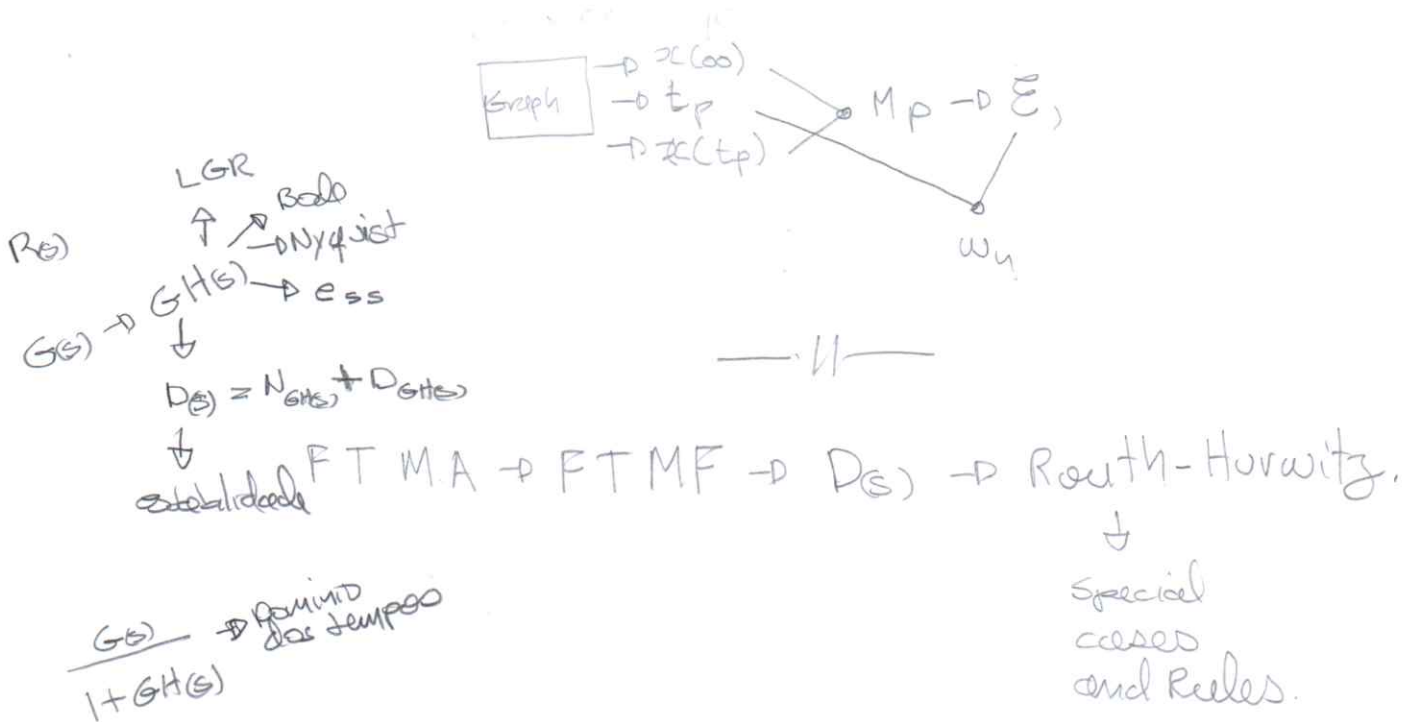 Graph → x(∞)
→ t_p
→ x(t_p)
M_p → ξ,
ω_n
LGR
Bode
→ Nyquist
R(s)
G(s) → GH(s) → e_ss
D(s) = N_GH(s) + D_GH(s)
estabilidade
FTMA → FTMF → D(s) → Routh-Hurwitz.
Special
cases
and Rules.
G(s) → Dominio
dos tempos
1+GH(s)